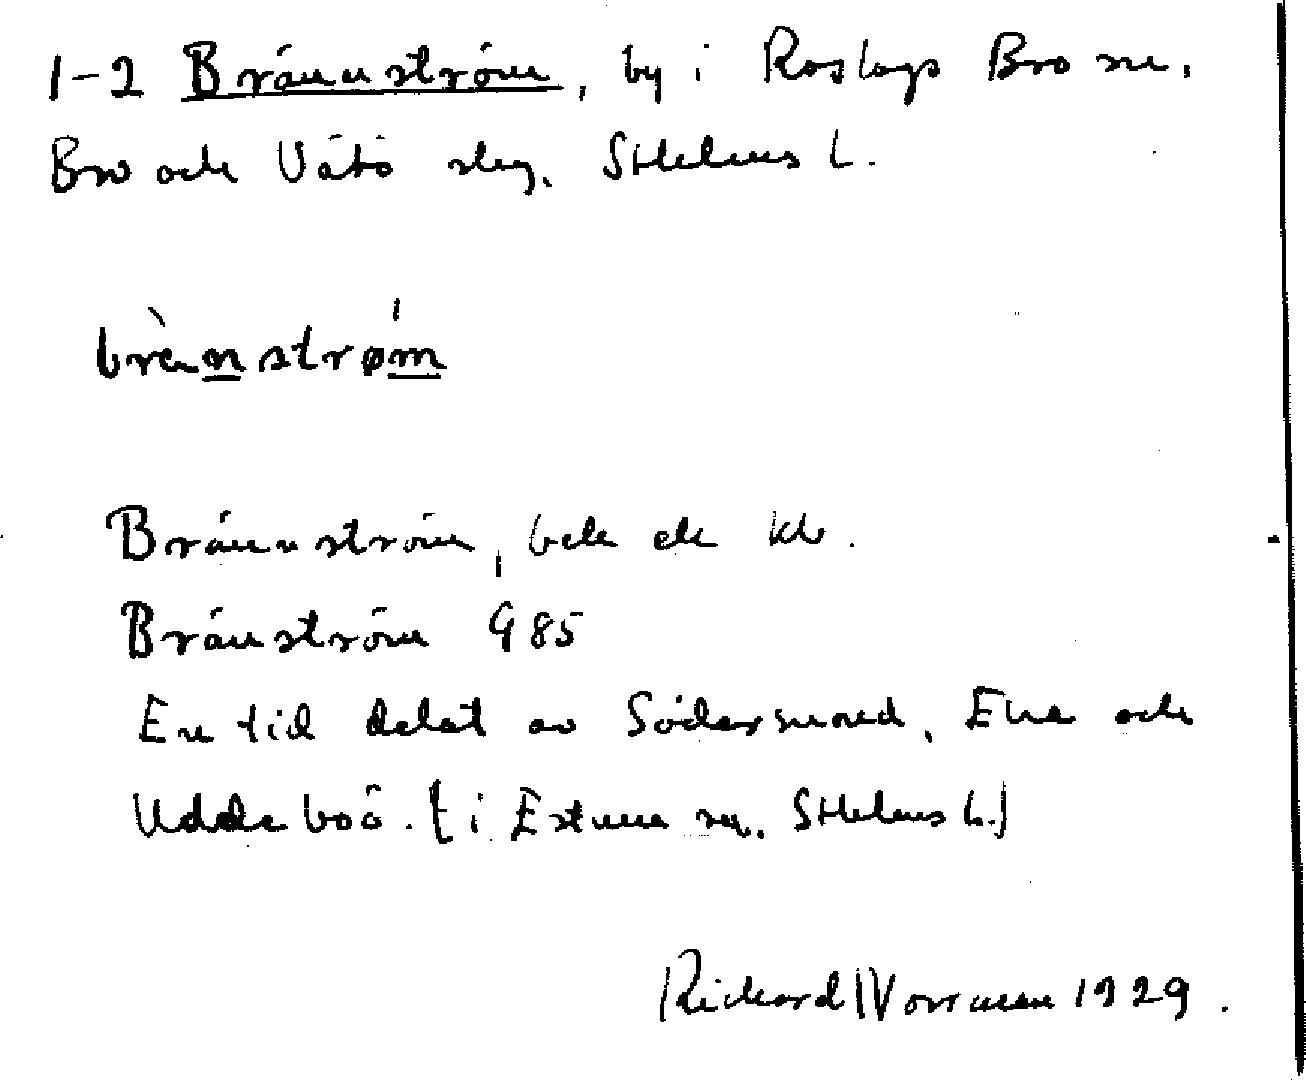 1-2 Brännström, by i Roslags Bro sn.
Bro och Vätö skg. Sthlms l.
brèn̲strøm̲
Brännström, bek ek kb.
Bränström G 85
En tid delat av Södersund, Ena och
Uddeboö. [i Estuna sn, Sthlms l.]
Rickard Norrman 1929.